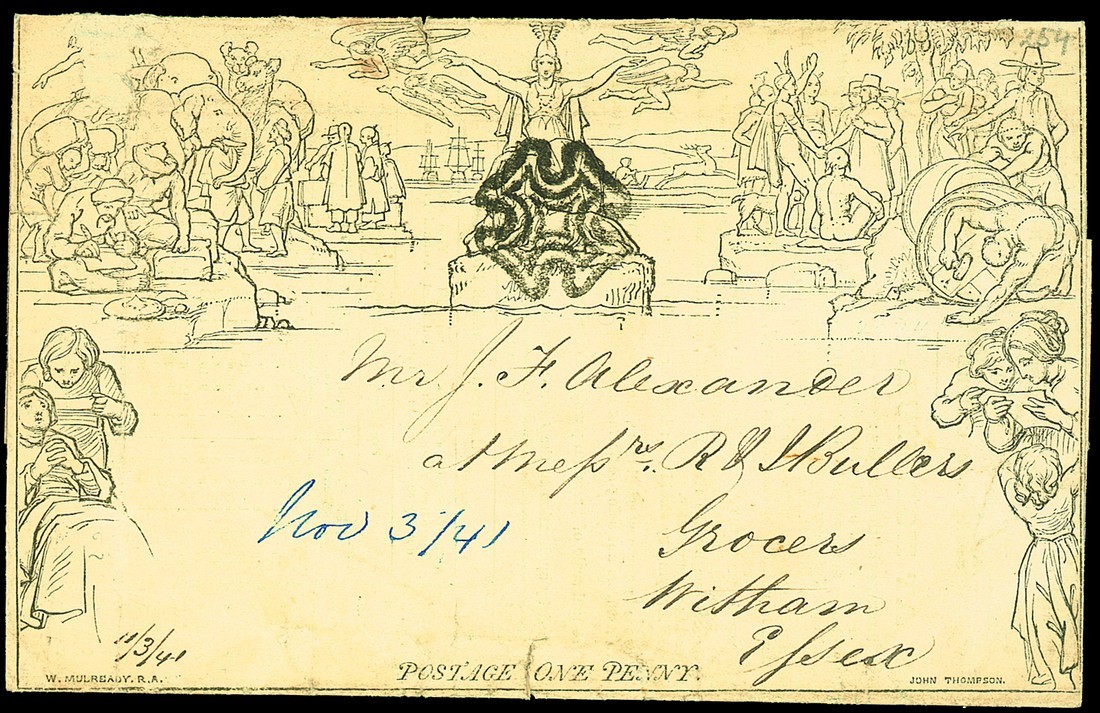 254
Mr J. F. Alexander
at Messrs. R & J Bullers
Nov 3/41
Grocers
Witham
Essex
11/3/41
POSTAGE ONE PENNY.
W. MULREADY. R.A.
JOHN THOMPSON.